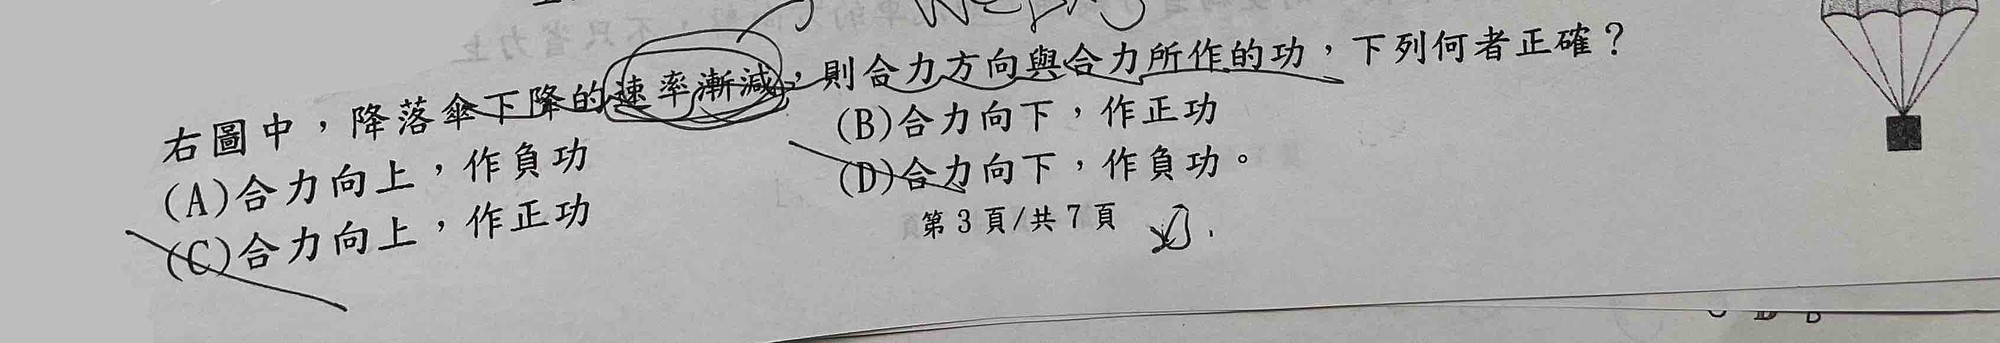 右圖中，降落傘下降的速率漸減，則合力方向與合力所作的功，下列何者正確？
(A)合力向上，作負功
(B)合力向下，作正功
(C)合力向上，作正功
(D)合力向下，作負功。
第3頁/共7頁